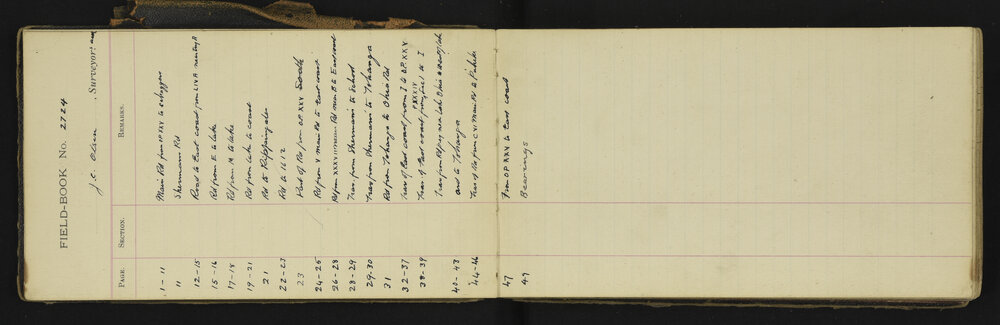 FIELD-BOOK No. 2724
J. C. Olsen, Surveyor.
PAGE. SECTION. REMARKS.
1-11 Main Rd from OP XXV to
" Shermanns Rd
12-15 Road to East coast from LIVA
15-16 Rd from E to lake
17-18 Rd from M to lake
19-21 Rd from lake to coast
21 Rd to
22-23 Rd to 1612
23 Part of Rd from OP. XXV South
24-25 Rd from V main Rd to East coast
26-28 Rd from XXXV main Rd near B to
28-29 Trav. from Shermanns to School
29-30 Trav. from Shermanns to Tohanga
31 Rd from Tohanga to Ohia Rd
32-37 Trav of East coast from I to O.P. XXV
38-39 Trav of East coast from to I
40-43 Trav from near Lake Ohia
and to Tohanga
44-46 Trav of Rd from CVI Main Rd to
47 From O.P. XXV to East coast
47 Bearings